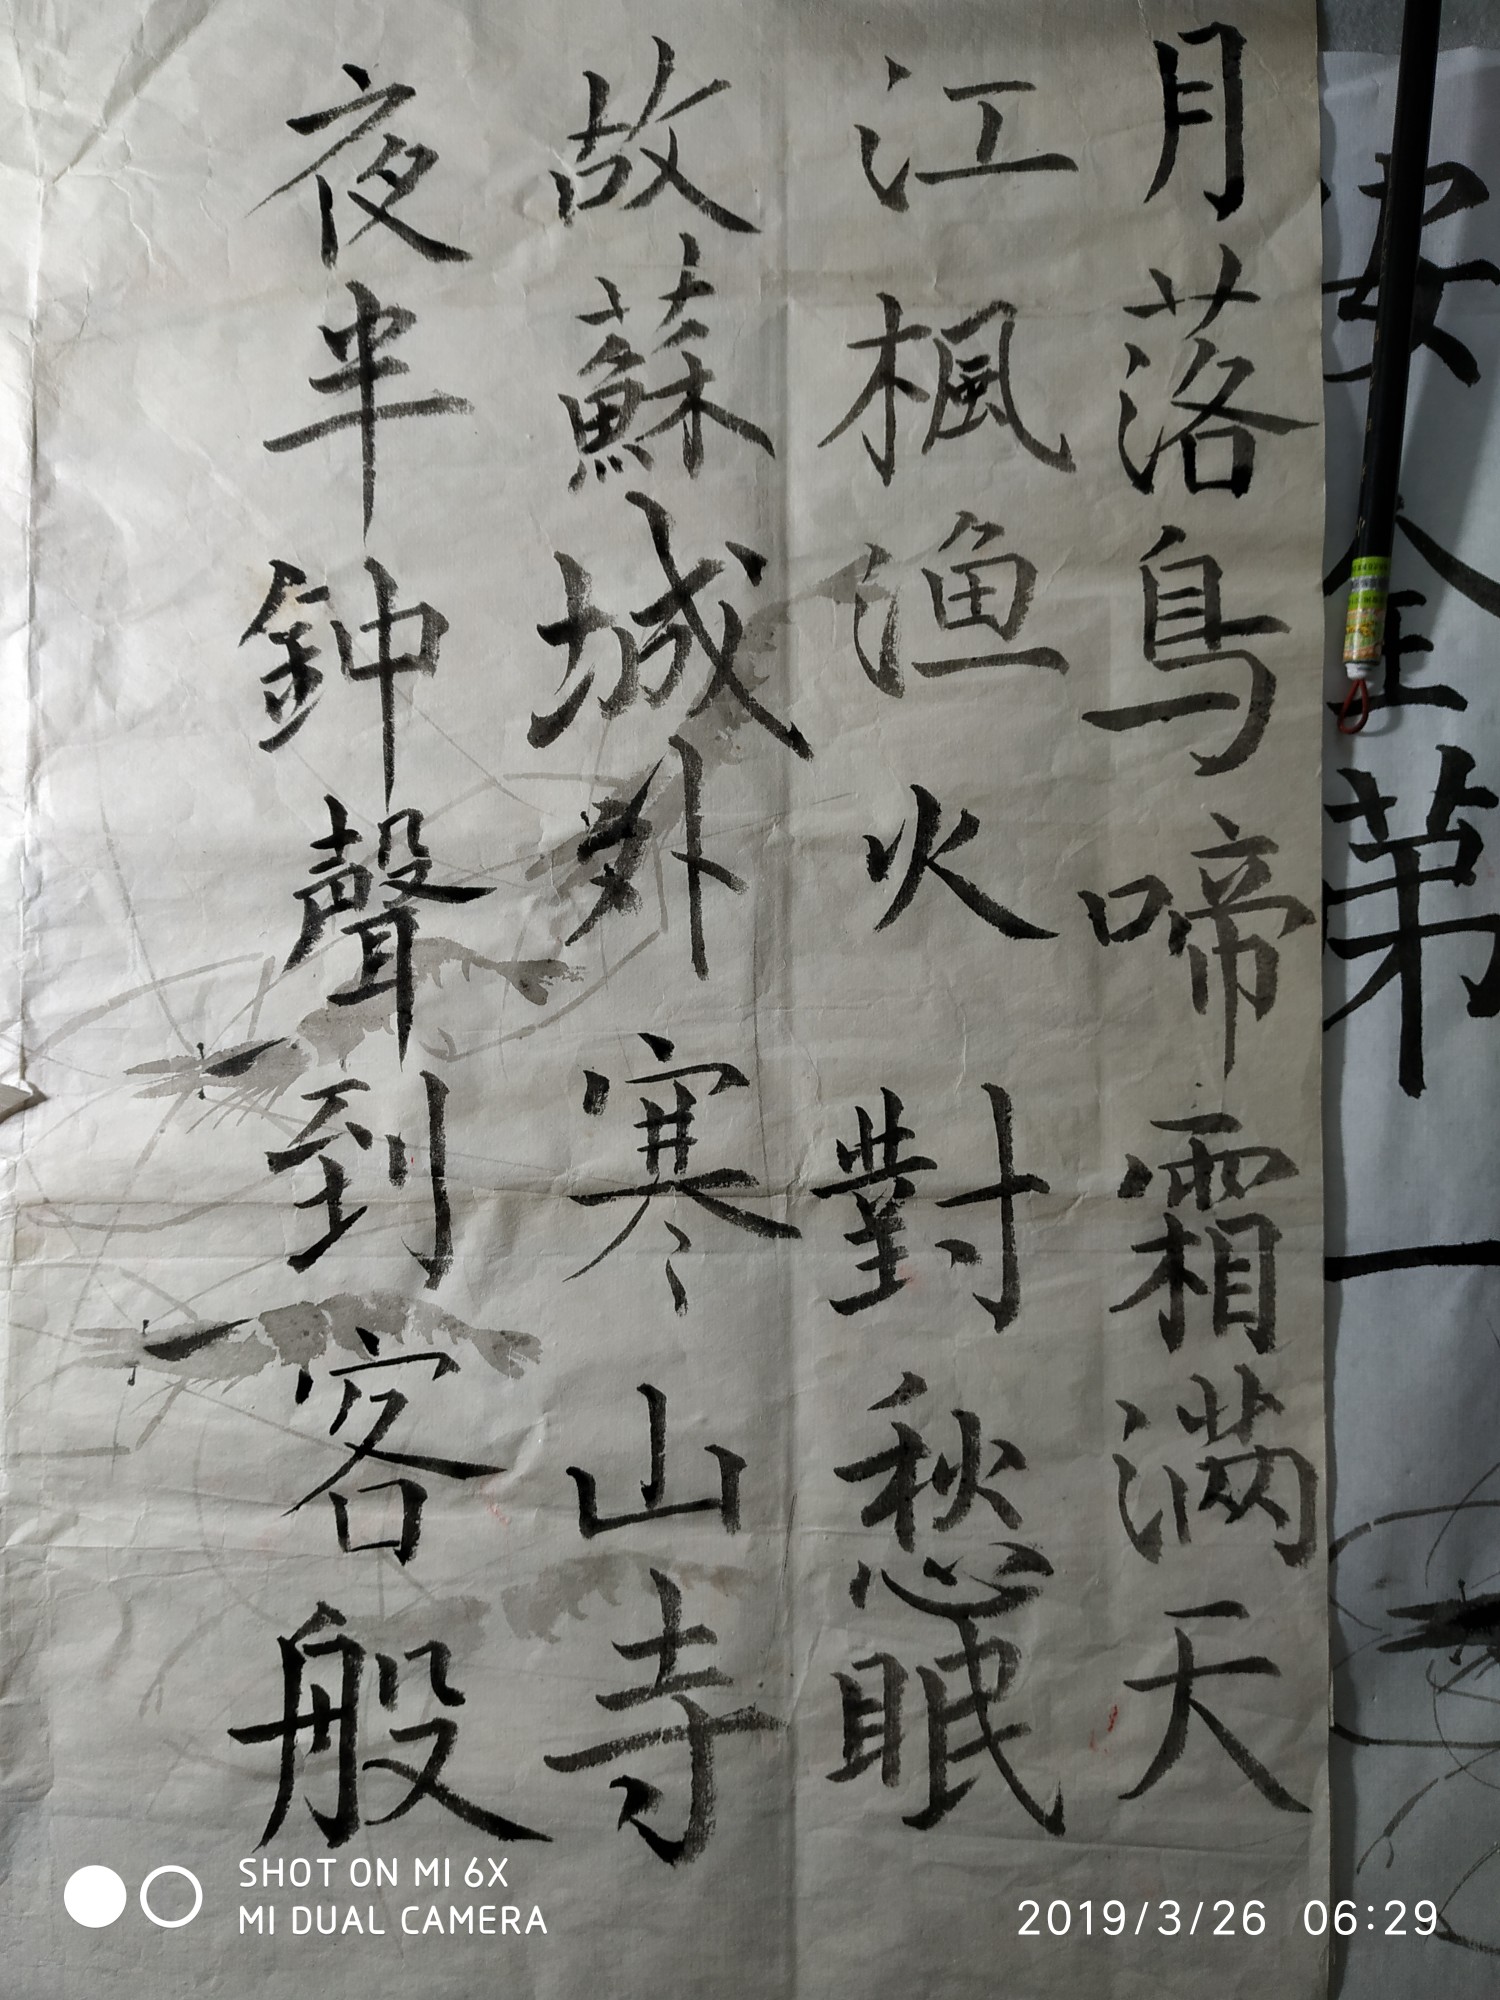 安全第一
月落鳥啼霜滿天
江楓渔火對愁眠
故蘇城外寒山寺
夜半鈡聲到客般
SHOT ON MI 6X
MI DUAL CAMERA
2019/3/26 06:29